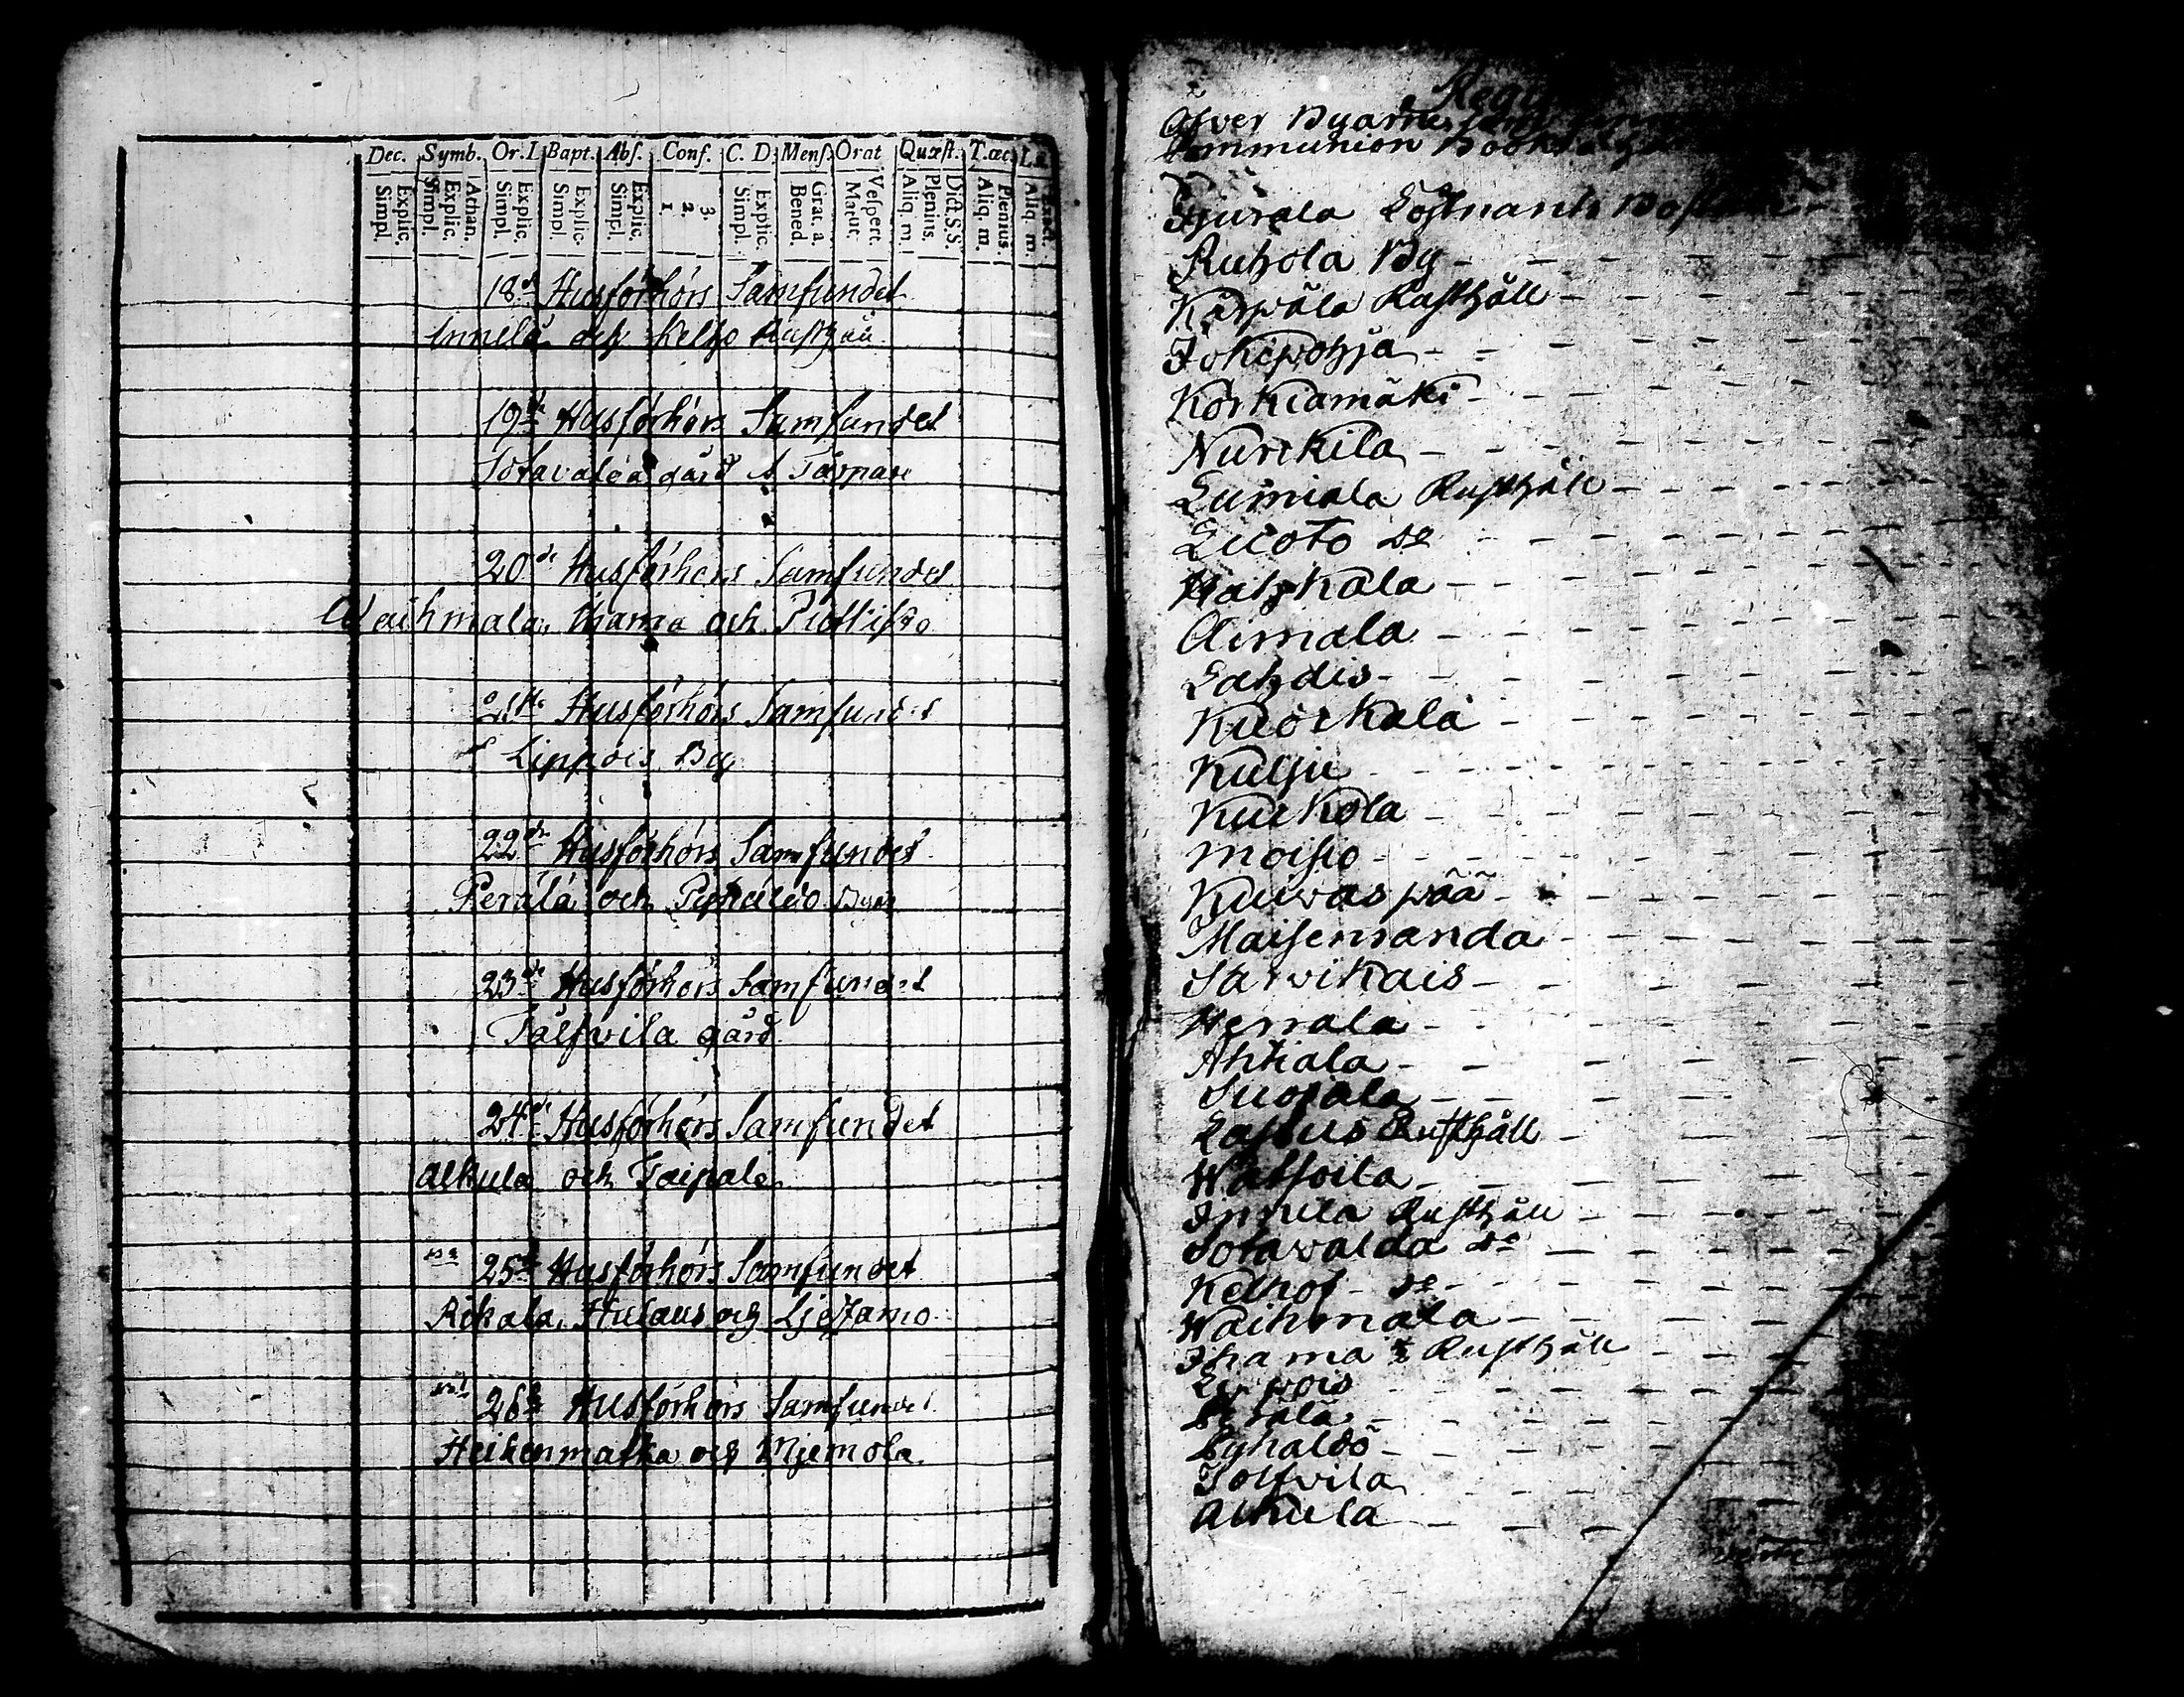 Dec. Symb. Or. D. Bapt. Abs. Conf. C. D. Mens. Orat Quæst. T. œc.
Explic. Simpl. Athan. Explic. Simpl. Explic. Simpl. Explic. Simpl. Explic. Simpl. 3. 2. 1. Explic. Simpl. Grat. a. Bened. Vespert. Matut. Dict. S.S. Plenius. Aliq. m. Plenius. Aliq. m. Aliq. m.
18de Husförhörs Samfundet
Innelä och Kelho Rusthåll
19de Husförhörs Samfundet
Sotavalda gård
20de Husförhörs Samfundet
Waihmala, Ihama och
21sta Husförhörs Samfundet
Lippois By
22dra Husförhörs Samfundet
Perälä och Pyhäldö Byar
23de Husförhörs Samfundet
Tålfvila gård
24de Husförhörs Samfundet
Alkula och Taipale
25te Husförhörs Samfundet
Rikala, Hulaus och Ljestamo
26te Husförhörs Samfundet
Heikenmatka och Mjemola
Öfver Byarne
Communion Book
Hjurala Löjtnants Bostäl
Ruhola By
Kärpälä Rusthåll
Jokipohja
Korkiamäki
Nurckila
Lumiala Rusthåll
Luoto do
Hahkala
Aimala
Lahdis
Kuorkala
Kulju
Kurkola
Moisio
Kuivaspää
Maisemanda
Sarvikais
Herrala
Ahtiala
Suojala
Lastus Rusthåll
Watsoila
Innila Rusthåll
Sotavalda do
Kelhof do
Waihmala
Ihama Rusthåll
Lippois
Perälä
Pyhäldö
Tolfvila
Alkula